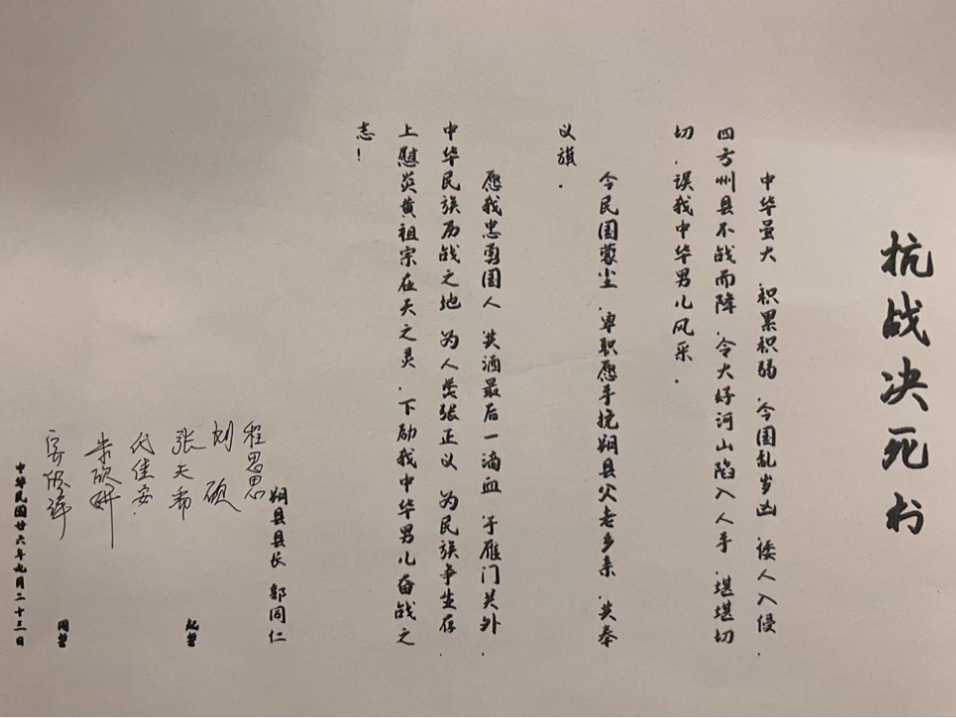 抗战决死书
中华虽大.积累积弱.今国乱岁凶.倭人入侵.
四方州县不战而降.令大好河山陷入人手.堪堪切
切.误我中华男儿风采.
今民国蒙尘.卑职愿手抚朔县父老乡亲.共奉
义旗.
愿我忠勇国人.共洒最后一滴血.于雁门关外.
中华民族历战之地.为人类张正义.为民族争生存.
上慰炎黄祖宗在天之灵.下励我中华男儿奋战之
志!
朔县县长 郭同仁
程思思
刘硕
起誓
张天希
代佳安
朱欣妍
同誓
中华民国廿六年九月二十三日